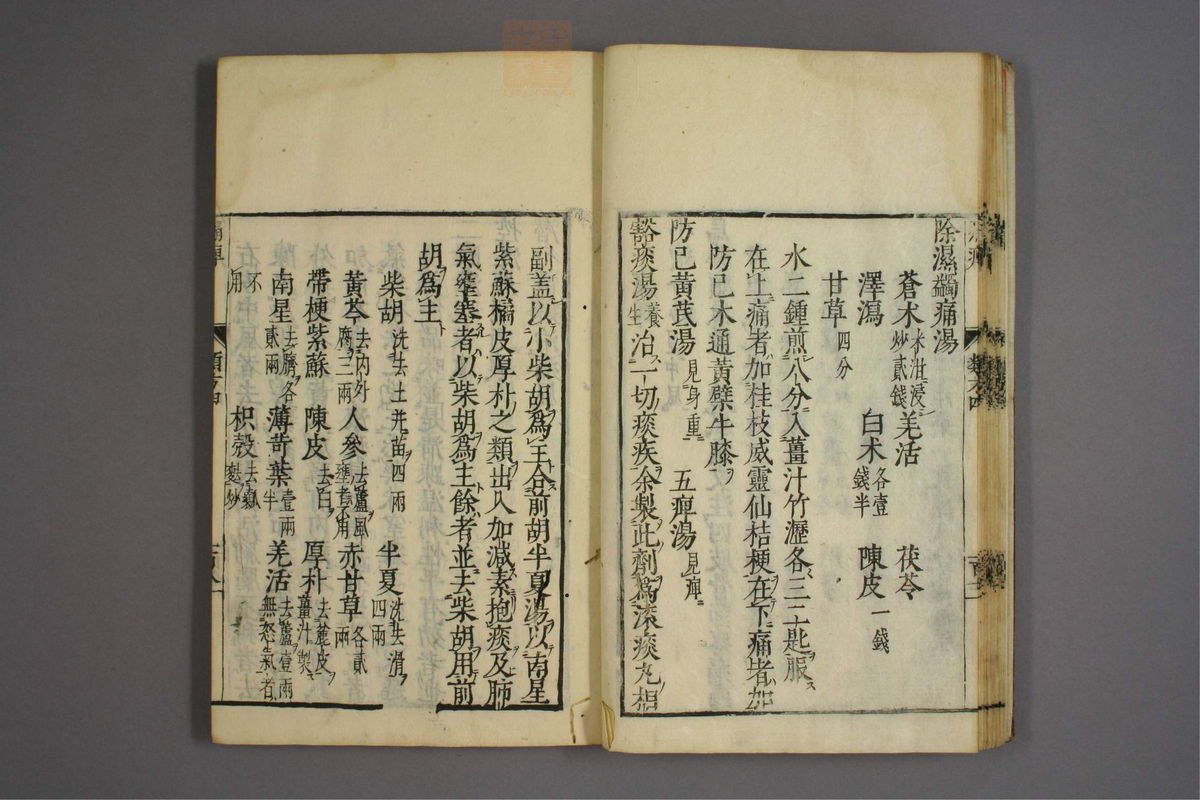 除濕蠲痛湯
蒼朮米泔浸炒貳錢 羌活 茯苓
澤瀉 白朮各壹錢半 陳皮一錢
甘草四分
水二鍾煎八分入薑汁竹瀝各三二匙服
在上痛者加桂枝威靈仙桔梗在下痛者加
防已木通黃檗牛膝
防已黃芪湯見身重 五痺湯見痺
豁痰湯養生治一切痰疾余製此劑爲滾痰丸相
副蓋以小柴胡爲主合前胡半夏湯以南星
紫蘇橘皮厚朴之類出入加減素抱痰及肺
氣壅塞者以柴胡爲主餘者並去柴胡用前
胡爲主
柴胡洗去土并苗四兩 半夏洗去滑四兩
黃芩去内外腐三兩 人參去蘆風壅者不用 赤甘草各貳兩
帶梗紫蘇 陳皮去白 厚朴去麄皮薑汁製
南星去臍各貳兩 薄苛葉壹兩半 羌活去蘆壹兩無怒氣者
不用 枳殼去瓤麩炒